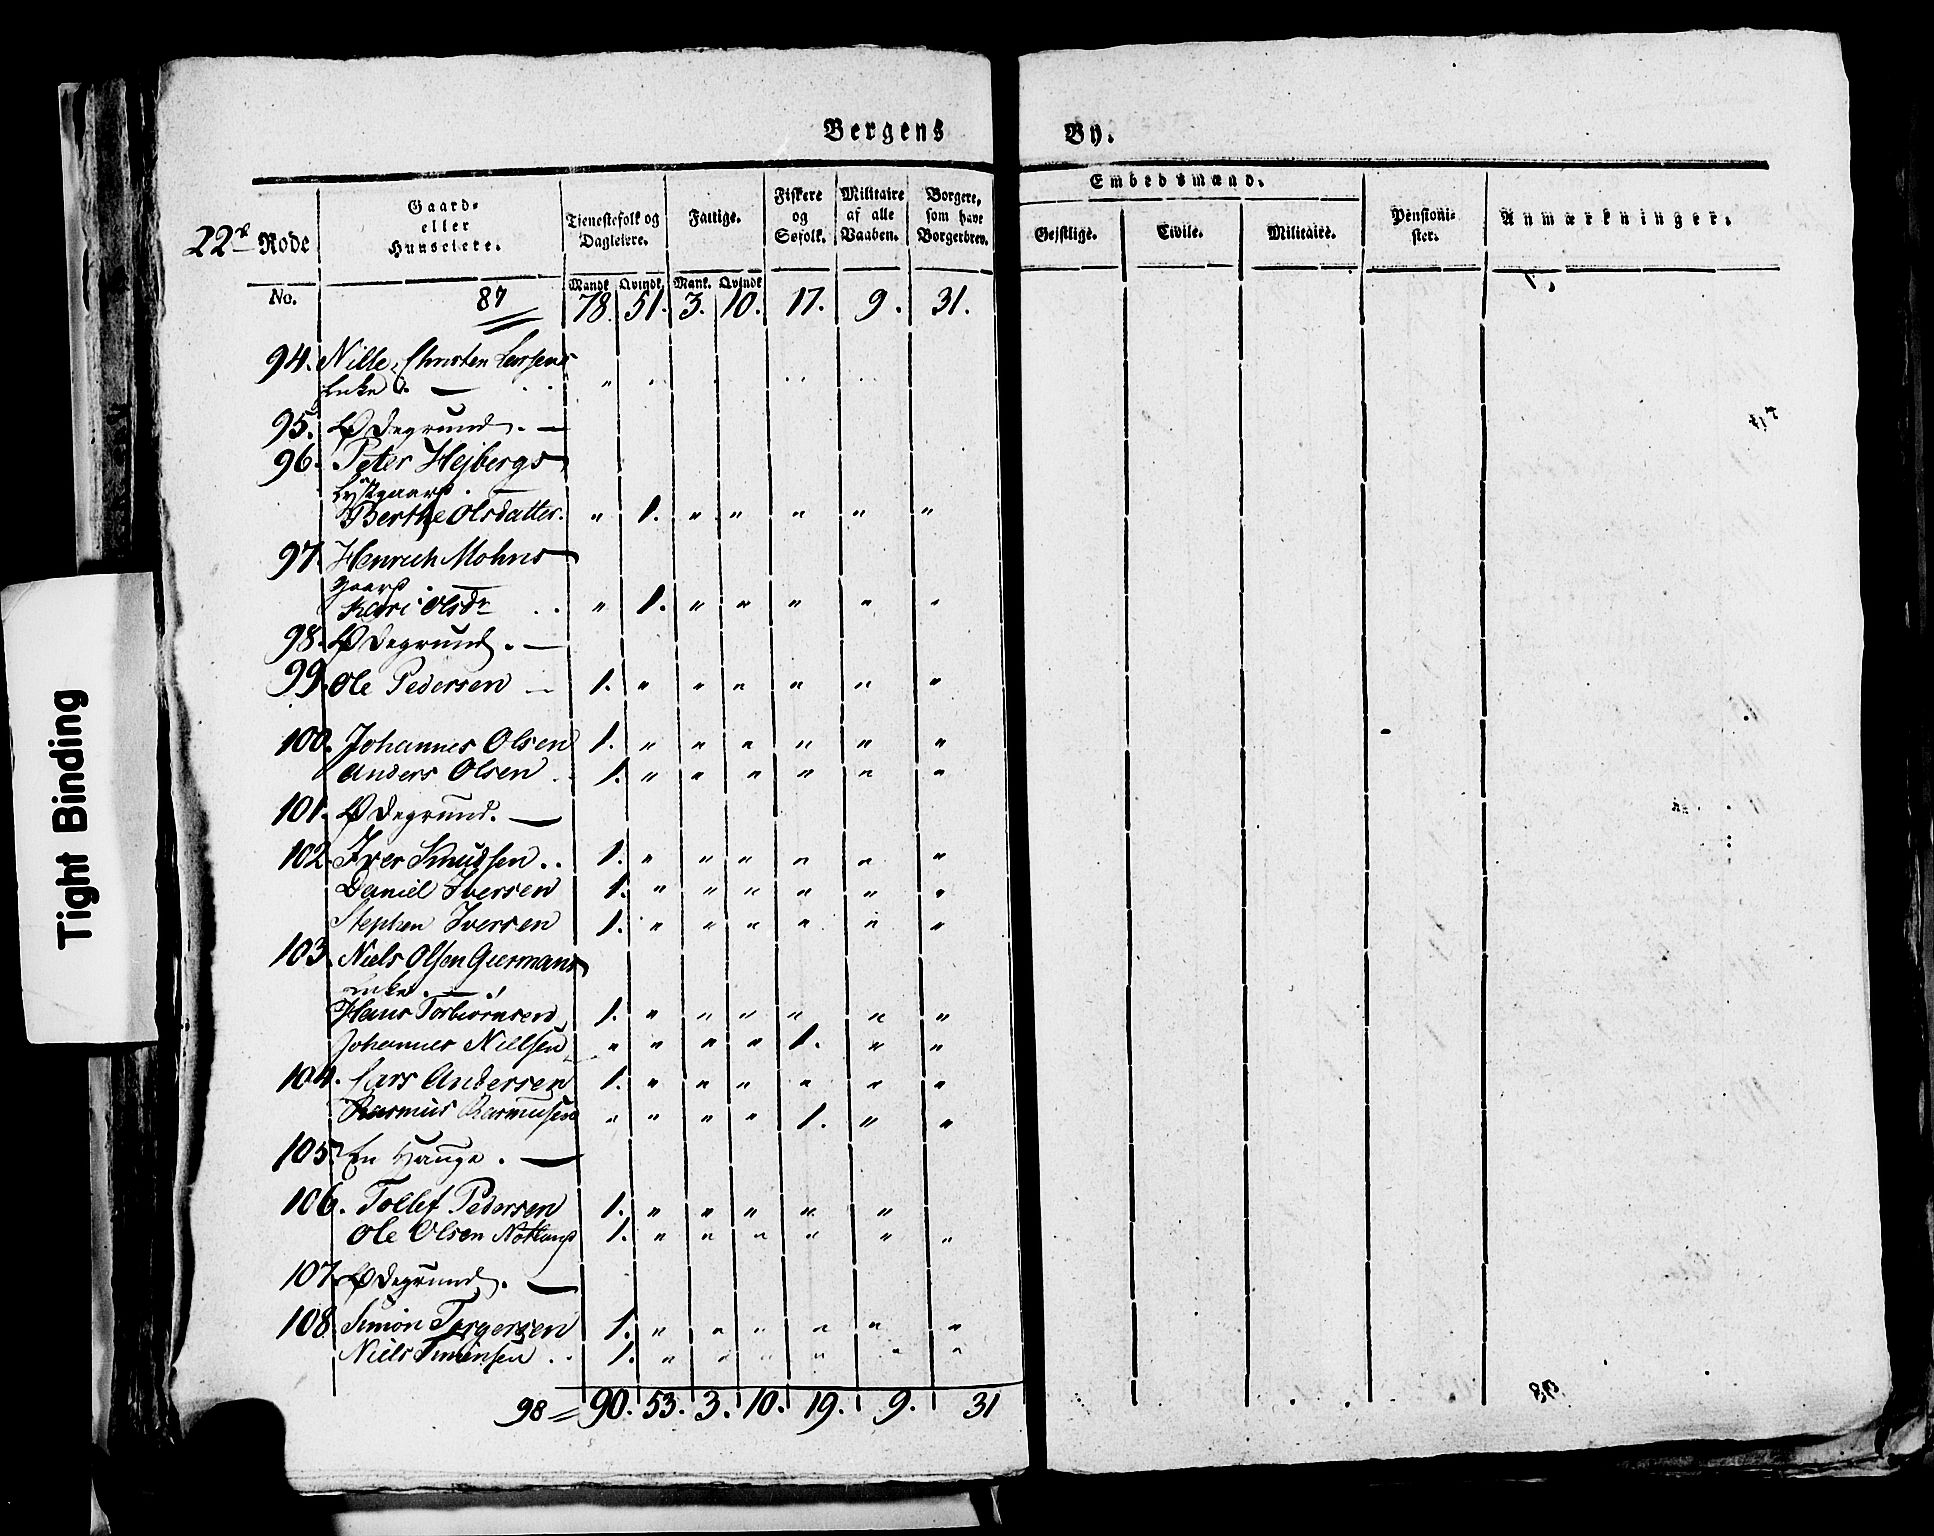 Bergens By.
22de Rode
No.
Gaard- eller Huuseiere.
Tjenestefolk og Dagleiere.
Mandk. Qvindk.
Fattige.
Mank. Qvindk.
Fiskere og Søfolk.
Militaire af alle Vaaben.
Borgere, som have Borgerbrev.
Embedsmænd.
Gejstlige. Civile. Militaire.
Pensionister.
Anmærkninger.
87 78. 51. 3. 10. 17. 9. 31.
94. Nille, Christen Larsens
Enke. —
95. Ødegrund. —
96. Peter Hejbergs
Lystgaard. —
Berthe Olsdatter. " 1. " " " " "
97. Henrich Mohns
Gaard. —
Kari Olsdr . . " 1. " " " " "
98. Ødegrund. —
99. Ole Pedersen — 1. " " " " " "
100. Johannes Olsen 1. " " " " " "
Anders Olsen . . 1. " " " " " "
101. Ødegrund. —
102. Iver Knudsen . . 1. " " " " " "
Daniel Iversen 1. " " " " " "
Stephen Iversen 1. " " " " " "
103. Niels Olsen Giermans
enke. —
Hans Torbiørnsen 1. " " " " " "
Johannes Nielsen " " " " 1. " "
104. Lars Andersen 1. " " " " " "
Rasmus Rasmussen " " " " 1. " "
105. En Hauge. —
106. Tollef Pedersen 1. " " " " "
Ole Olsen Nøtland 1. " " " " " "
107. Ødegrund. —
108. Simon Torgersen 1. " " " " " "
Niels Simensen . . 1. " " " " " "
98 = 90. 53. 3. 10. 19. 9. 31
Tight Binding